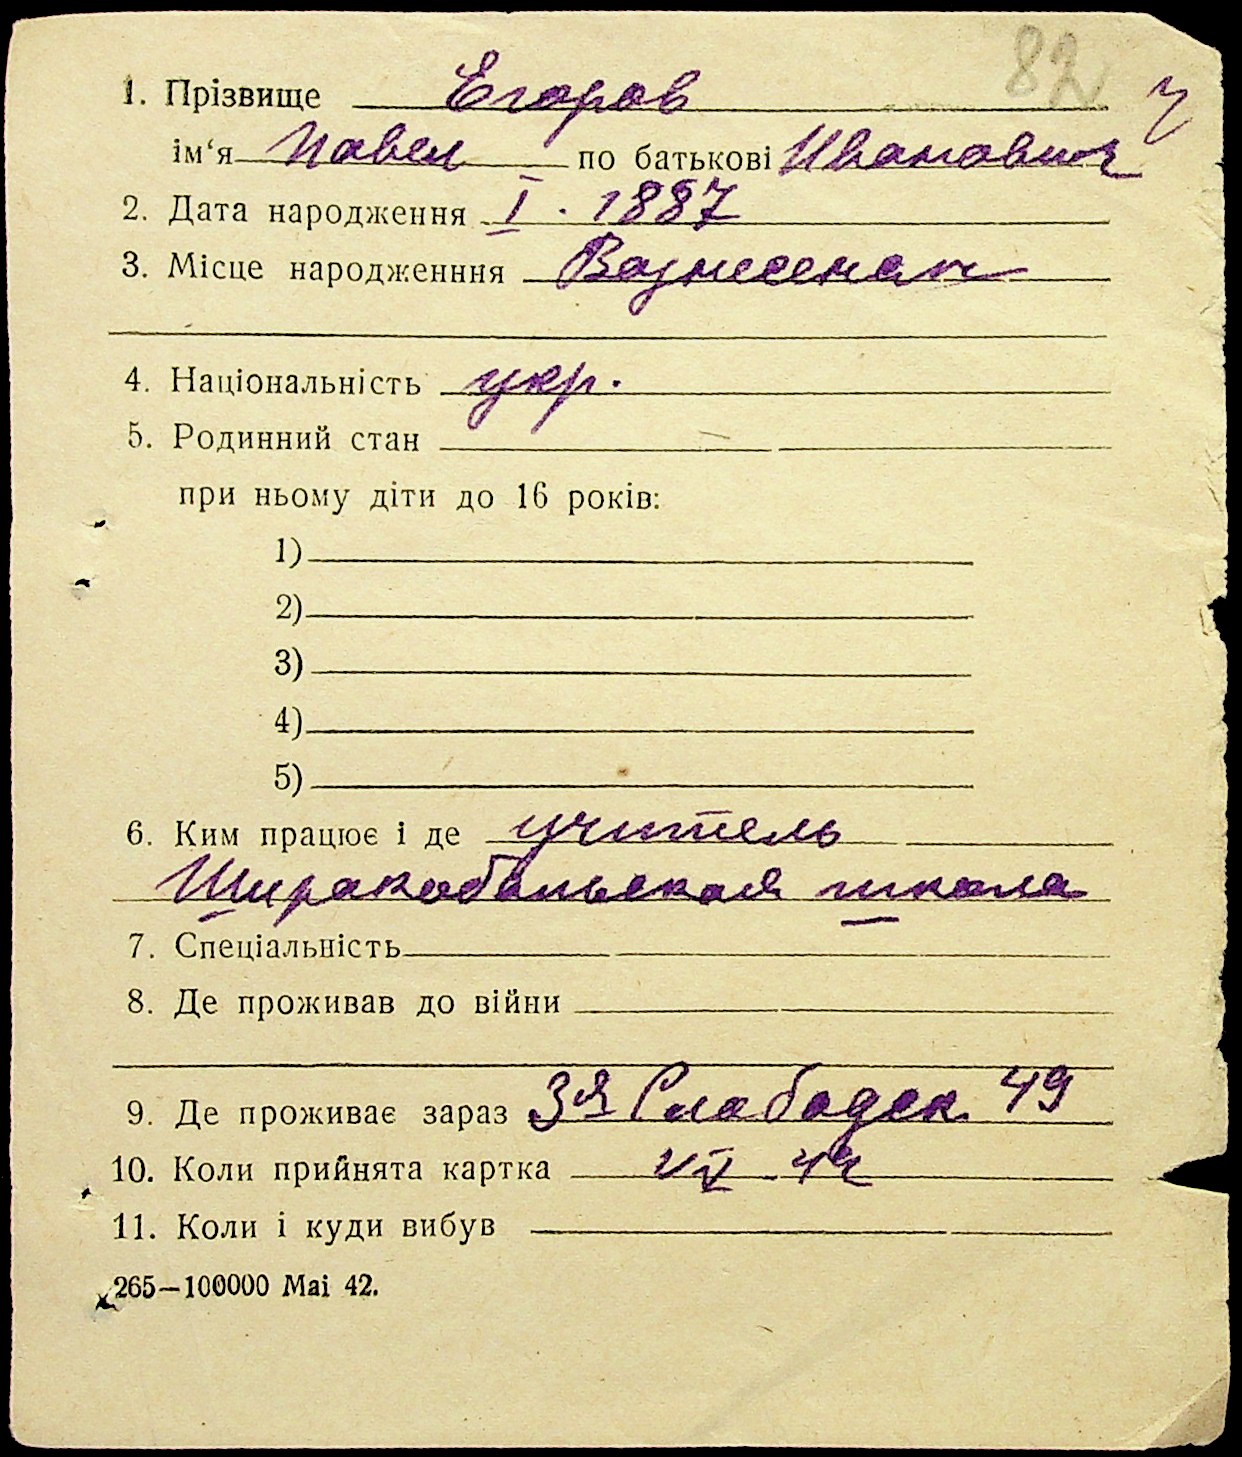 82
1. Прізвище Егоров ч
ім‘я Павел по батькові Иванович
2. Дата народження I. 1887
3. Місце народженння Вознесенск
4. Національність укр.
5. Родинний стан —
при ньому діти до 16 років:
1)
2)
3)
4)
5)
6. Ким працює і де учитель
Широкобальская школа
7. Спеціальність
8. Де проживав до війни
9. Де проживає зараз 3я Слободск. 49
10. Коли прийнята картка 42
11. Коли і куди вибув
265—100000 Mai 42.